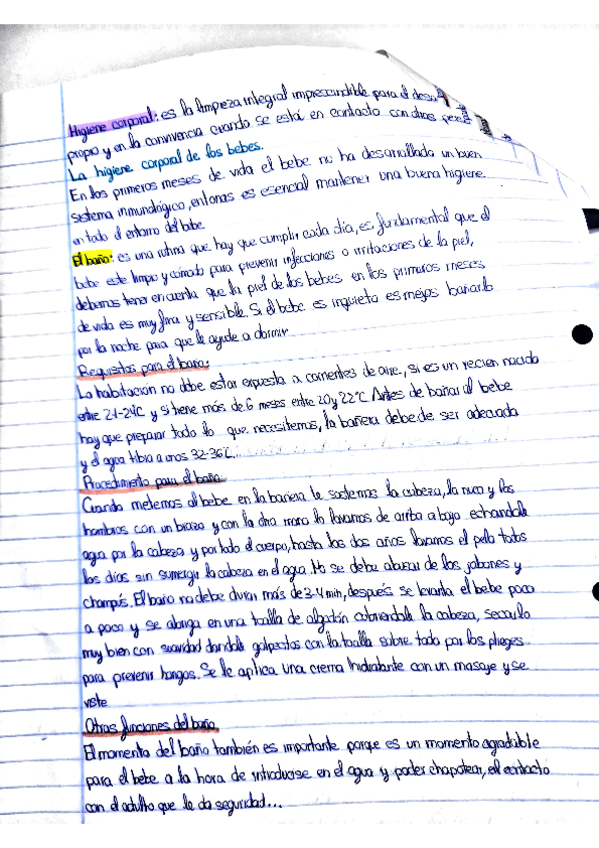 Higiene corporal: es la limpieza integral imprescindible para el
propio y en la convivencia cuando se está en contacto con otras
La higiene corporal de los bebes.
En los primeros meses de vida el bebe no ha desarrollado un buen
sistema inmunológico, entonces es esencial mantener una buena higiene
en todo el entorno del bebe
El baño: es una rutina que hay que cumplir cada día, es fundamental que el
bebe este limpio y cómodo para prevenir infecciones o irritaciones de la piel,
debemos tener en cuenta que la piel de los bebes en los primeros meses
de vida es muy fina y sensible. Si el bebe es inquieto es mejor bañarlo
por la noche para que le ayude a dormir
Requisitos para el baño:
La habitación no debe estar expuesta a corrientes de aire, si es un recien nacido
entre 21-24C y si tiene más de 6 meses entre 20 y 22°C. Antes de bañar al bebe
hay que preparar todo lo que necesitemos, la bañera debe de ser adecuada
y el agua tibia a unos 32-36C...
Procedimiento para el baño
Cuando metemos al bebe en la bañera le sostemos la cabeza, la nuca y los
hombros con un brazo y con la otra mano lo lavamos de arriba a bajo echandole
agua por la cabeza y por todo el cuerpo, hasta los dos años lavamos el pelo todos
los días sin sumergir la cabeza en el agua. No se debe abusar de los jabones y
champús. El baño no debe durar más de 3-4 min, después se levanta el bebe poco
a poco y se abriga en una toalla de algodón cubriendole la cabeza, secarlo
muy bien con suavidad dandole golpecitos con la toalla sobre todo por los pliegues
para prevenir hongos. Se le aplica una crema hidratante con un masaje y se
viste
Otras funciones del baño
El momento del baño también es importante porque es un momento agradable
para el bebe a la hora de introducirse en el agua y poder chapotear, el contacto
con el adulto que le da seguridad...